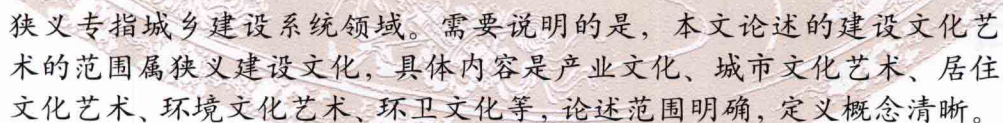 狭义专指城乡建设系统领域。需要说明的是，本文论述的建设文化艺
术的范围属狭义建设文化，具体内容是产业文化、城市文化艺术、居住
文化艺术、环境文化艺术、环卫文化等，论述范围明确，定义概念清晰。